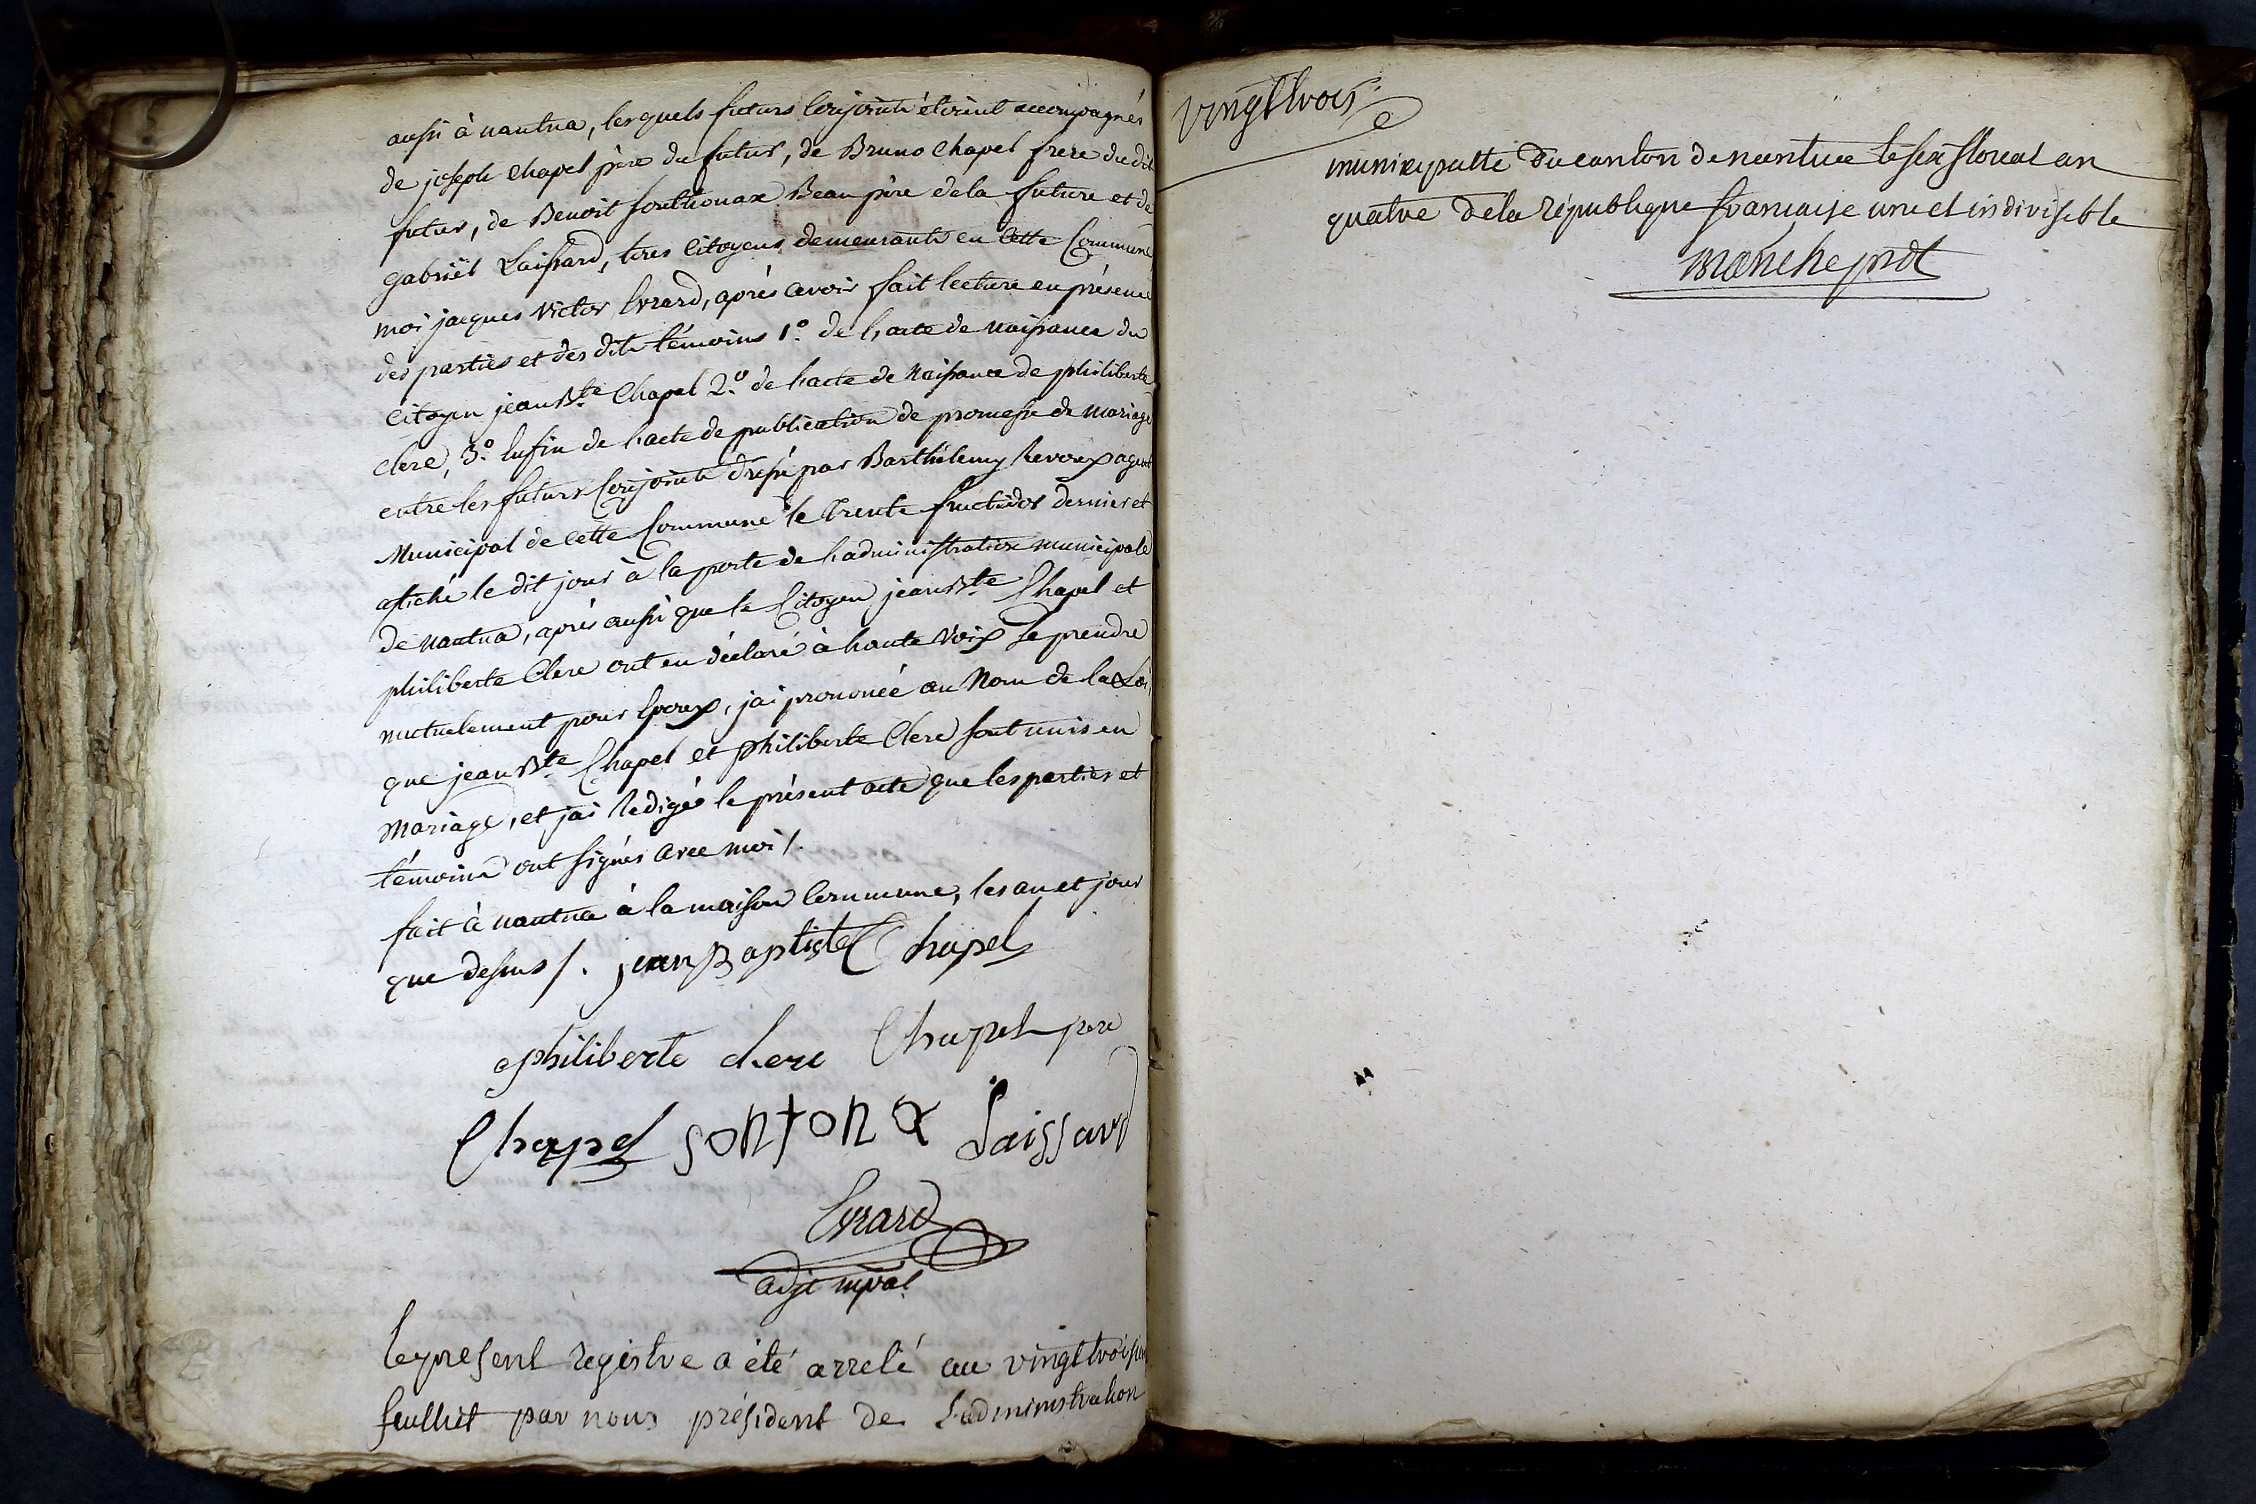 aussi à nantua, lesquels futurs Conjoints étoient accompagnés
de joseph chapel père du futur, de Bruno Chapel frere du dit
futur, de Benoit sonthonax Beau père de la future et de
gabriël Laissard, tous Citoyens demeurants en Cette Commune,
moi jacques Victor Evrard, après avoir fait lecture en présence
des parties et des dits témoins 1.º de l'acte de naissance du
Citoyen jean Bte Chapel 2.º de l'acte de Naissance de philiberte
clerc, 3.º enfin de l'acte de publication de promesse de mariage
entre les futurs Conjoints dressé par Barthélemy agent
Municipal de Cette Commune le trente fructidor dernier et
afiché le dit jour à la porte de l'administration municipale
de nantua, après aussi que le Citoyen jean Bte Chapel et
philiberte Clerc ont eu déclaré à haute voix se prendre
mutuelement pour Epoux, jai prononcé au Nom de la Loi,
que jean Bte Chapel et philiberte Clerc sont unis en
mariage, et jai Redigé le présent acte que les parties et
témoins ont signés avec moi /.
fait à nantua à la maison Commune, les an et jour
que dessus /. jean Baptiste Chapel
philiberte clerc Chapel pere
Chapel sontonax Laissard
Evrard
adjt mpal
le present registre a été arreté au vingt troisieme
feullict par nous président de L'administration
vingt trois
municipalle du canton de nantua le six floreal an
quatre de la république francaise une et indivisible